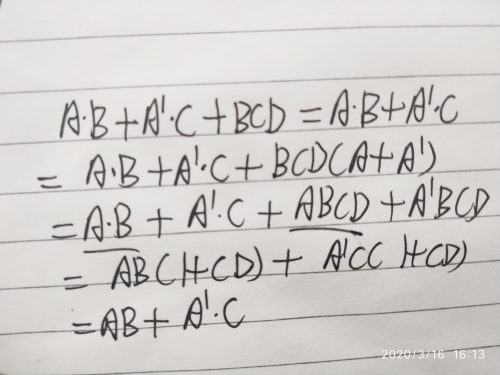 A·B+A'·C+BCD=A·B+A'·C
= A·B+A'·C+BCD(A+A')
=A·B+A'·C+ABCD+A'BCD
= AB(1+CD)+A'C(1+CD)
=AB+A'·C
2020/3/16 16:13